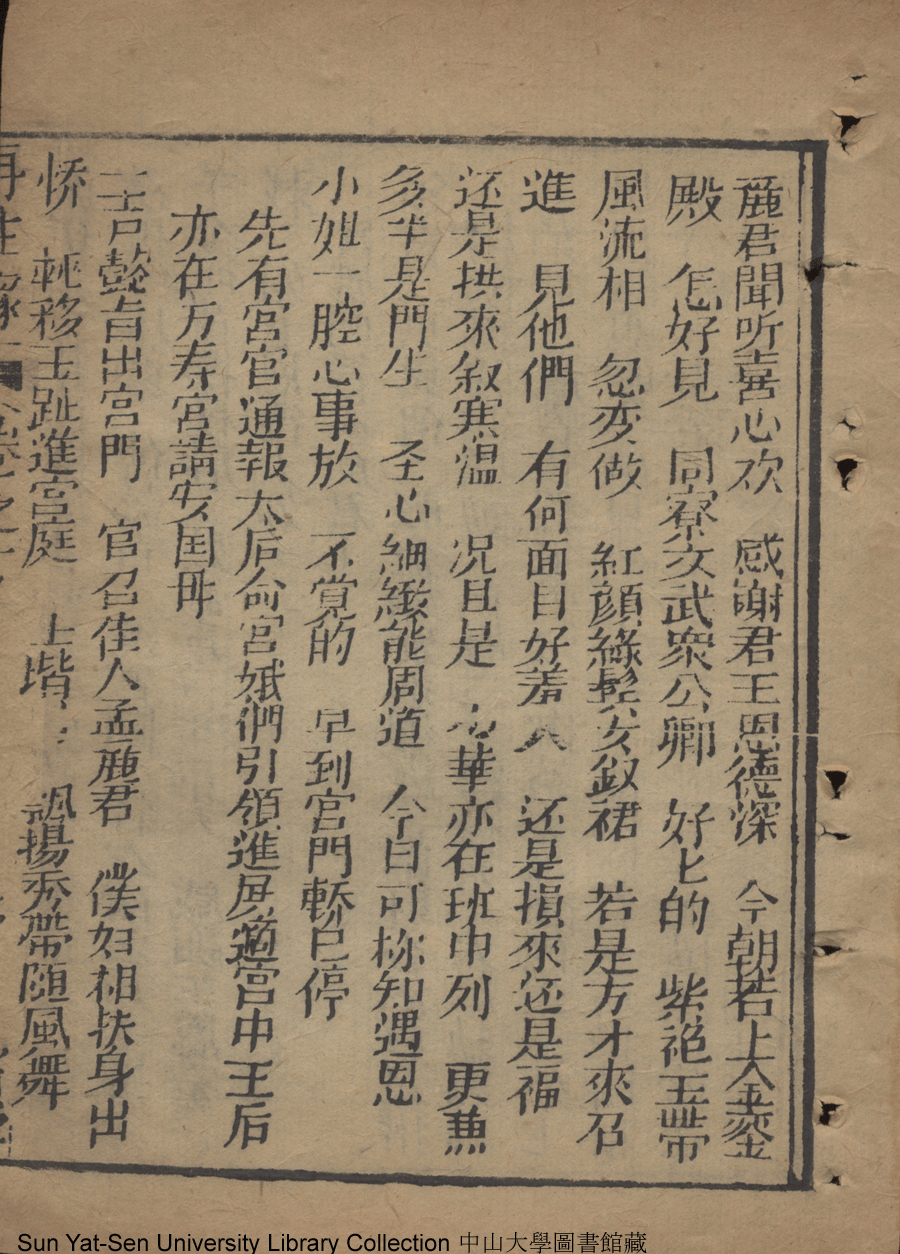 麗君聞听喜心欢 感謝君王恩德深 今朝若上金鑾
殿 怎好見 同寮文武衆公卿 好匕的 紫袍玉帶
風流相 忽变做 紅顔綠鬓女釵裙 若是方才來召
進 見他們 有何面目好羞人 还是損來还是福
还是拱來叙寒温 况且是 華亦在班中列 更兼
多半是門生 圣心細緻能周道 今日可称知遇恩
小姐一腔心事放 不覚的 早到宮門轎已停
先有宮官通報太后命宮娥們引領進房適宮中王后
亦在万寿宮請安国母
出宮門 官召佳人孟麗君 僕妇相扶身出
轿 輕移玉趾進宮庭 上堦 飄揚秀帶随風舞
再生縁
Sun Yat-Sen University Library Collection 中山大學圖書館藏